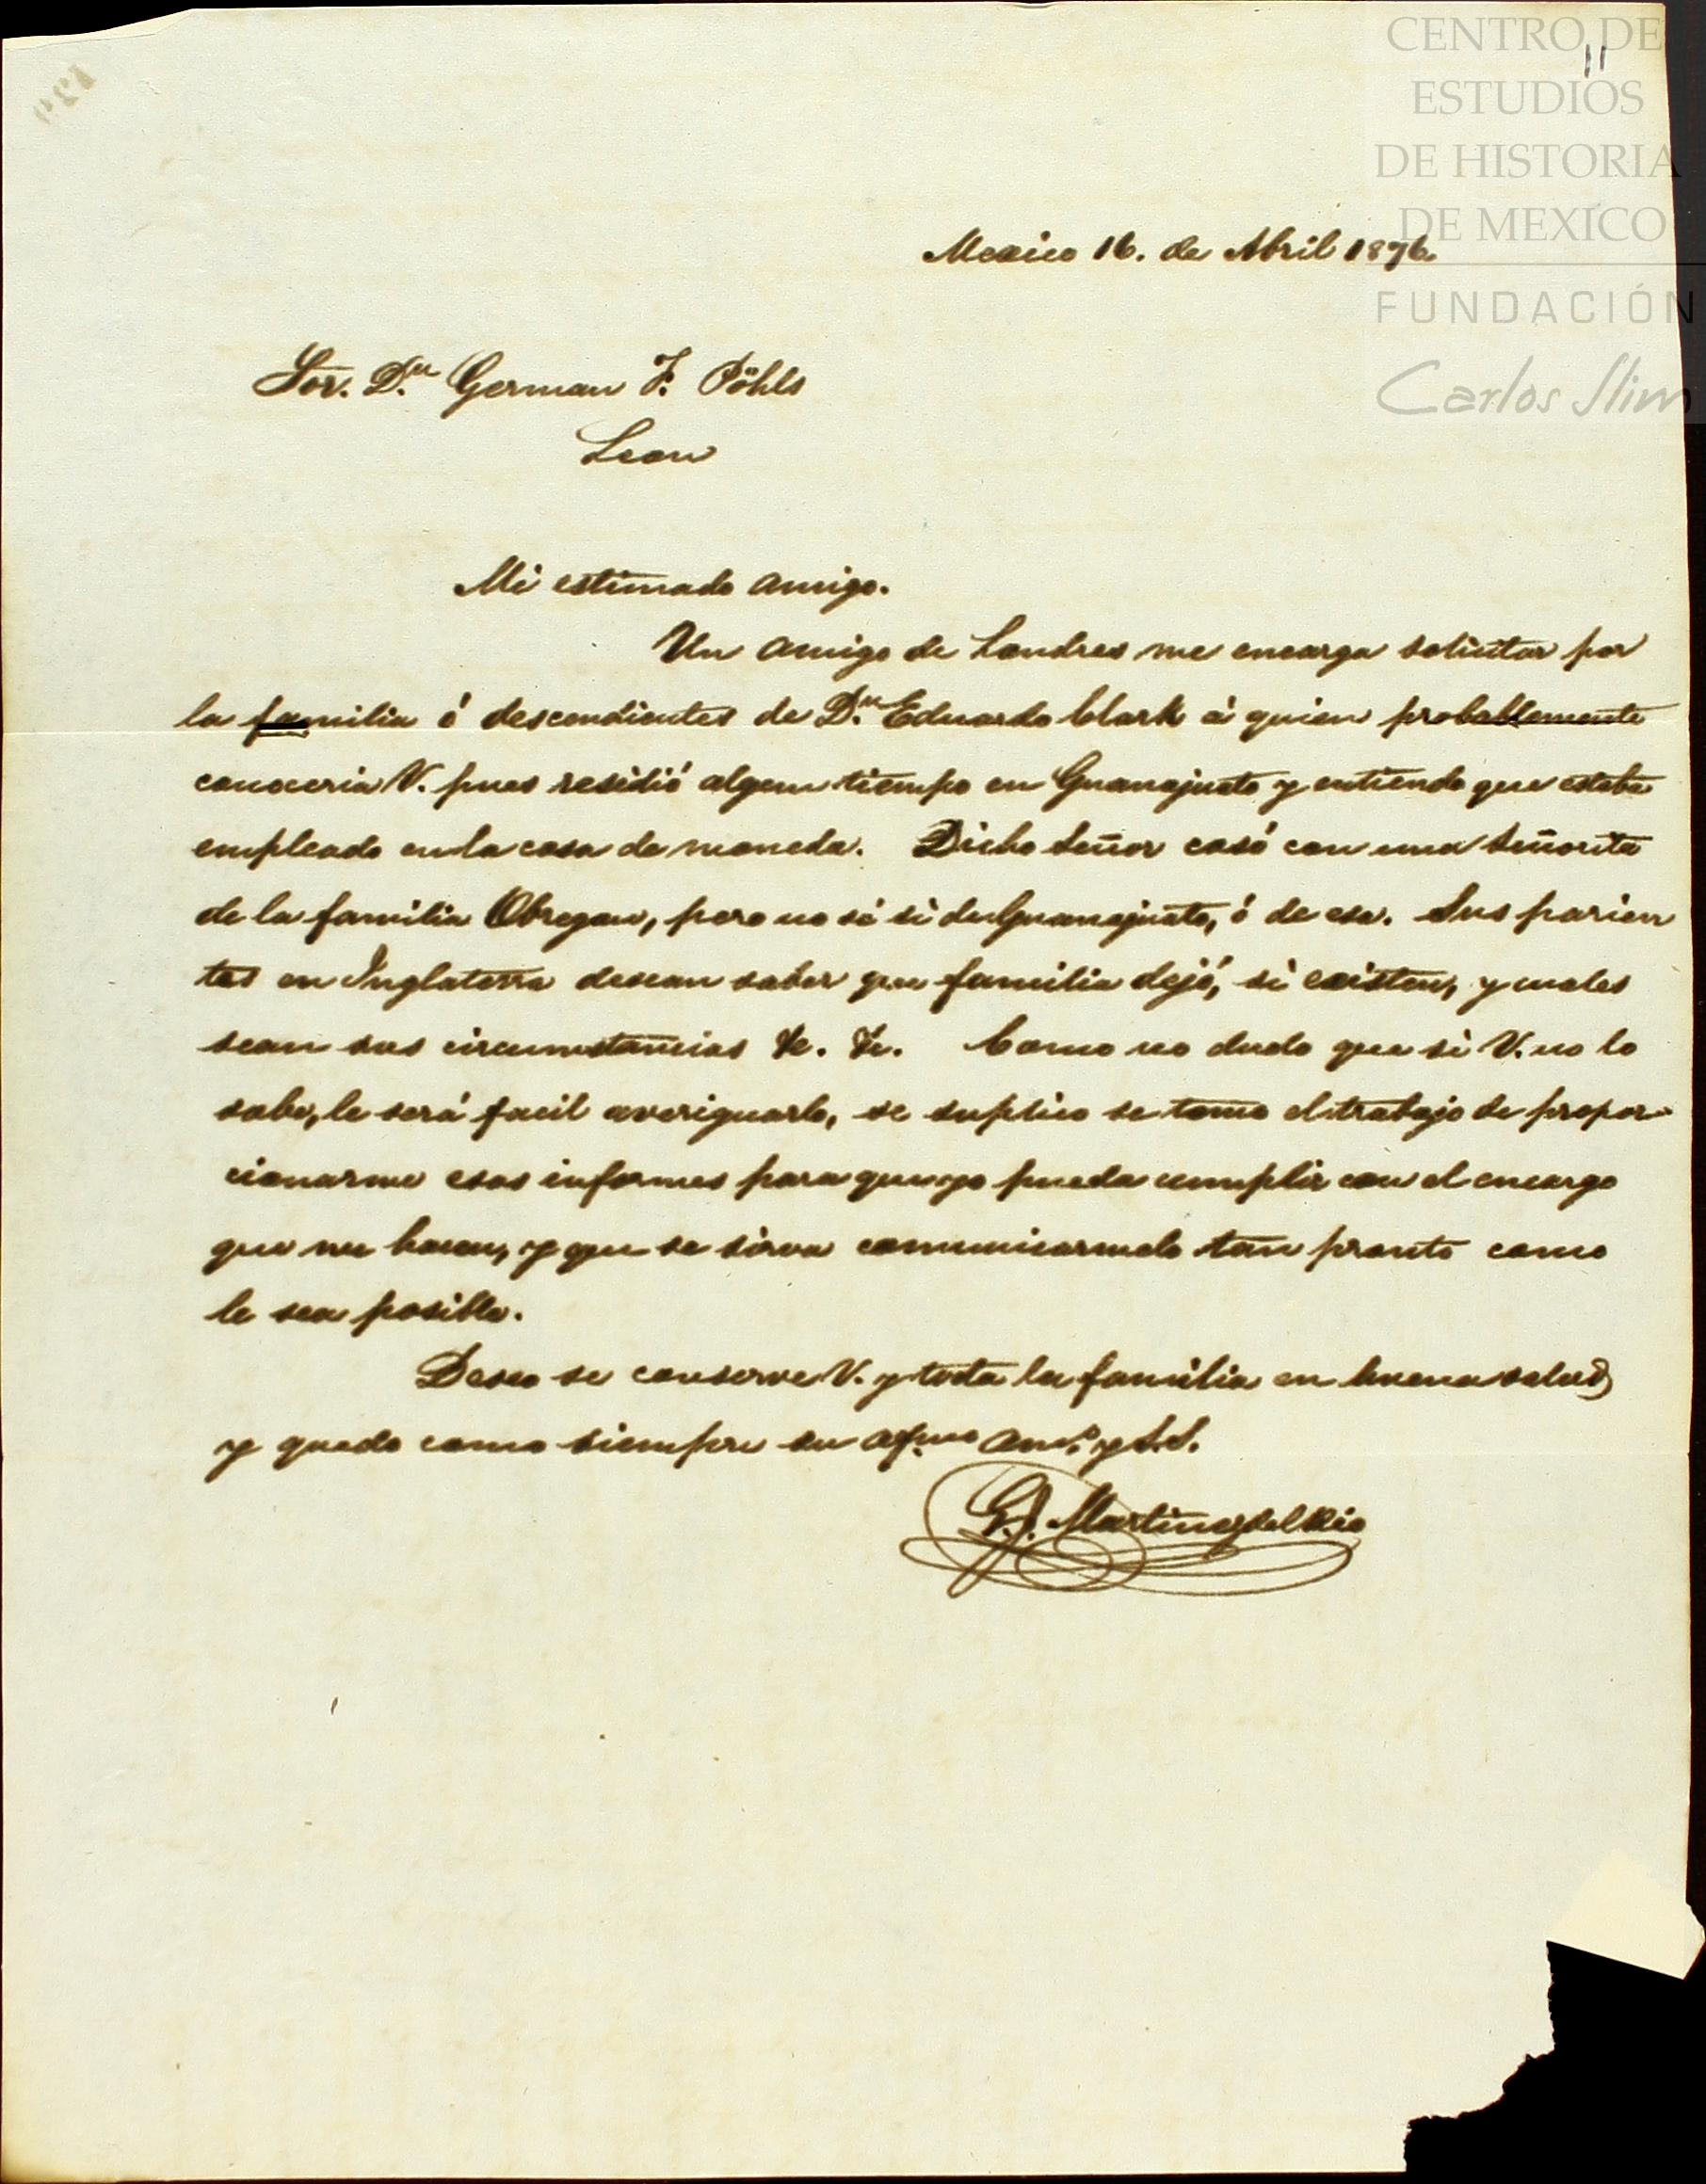 CENTRO DE
ESTUDIOS
DE HISTORIA
DE MEXICO
FUNDACIÓN
Carlos Slim
11
Mexico 16. de Abril 1876.
Sor. Dn. German F. Pöhls
Leon
Mi estimado amigo.
Un amigo de Londres me encarga solicitar por
la familia ó descendientes de Dn. Eduardo Clark á quien probablemente
conoceria V. pues residió algun tiempo en Guanajuato y entiendo que estaba
empleado en la casa de moneda. Dicho Señor casó con una Señorita
de la familia Obregon, pero no sé si de Guanajuato, ó de esa. Sus parien
tes en Inglaterra desean saber que familia dejó, si existen, y cuales
sean sus circumstancias &c. &c. Como no dudo que si V. no lo
sabe, le será facil averiguarlo, le suplico se tome el trabajo de propor-
cionarme esos informes para que yo pueda cumplir con el encargo
que me hacen, y que se sirva comunicarmelo tan pronto como
le sea posible.
Deseo se conserve V. y toda la familia en buena salud
y quedo como siempre su afmo. amo. y S.S.
G. J. Martinez del Rio